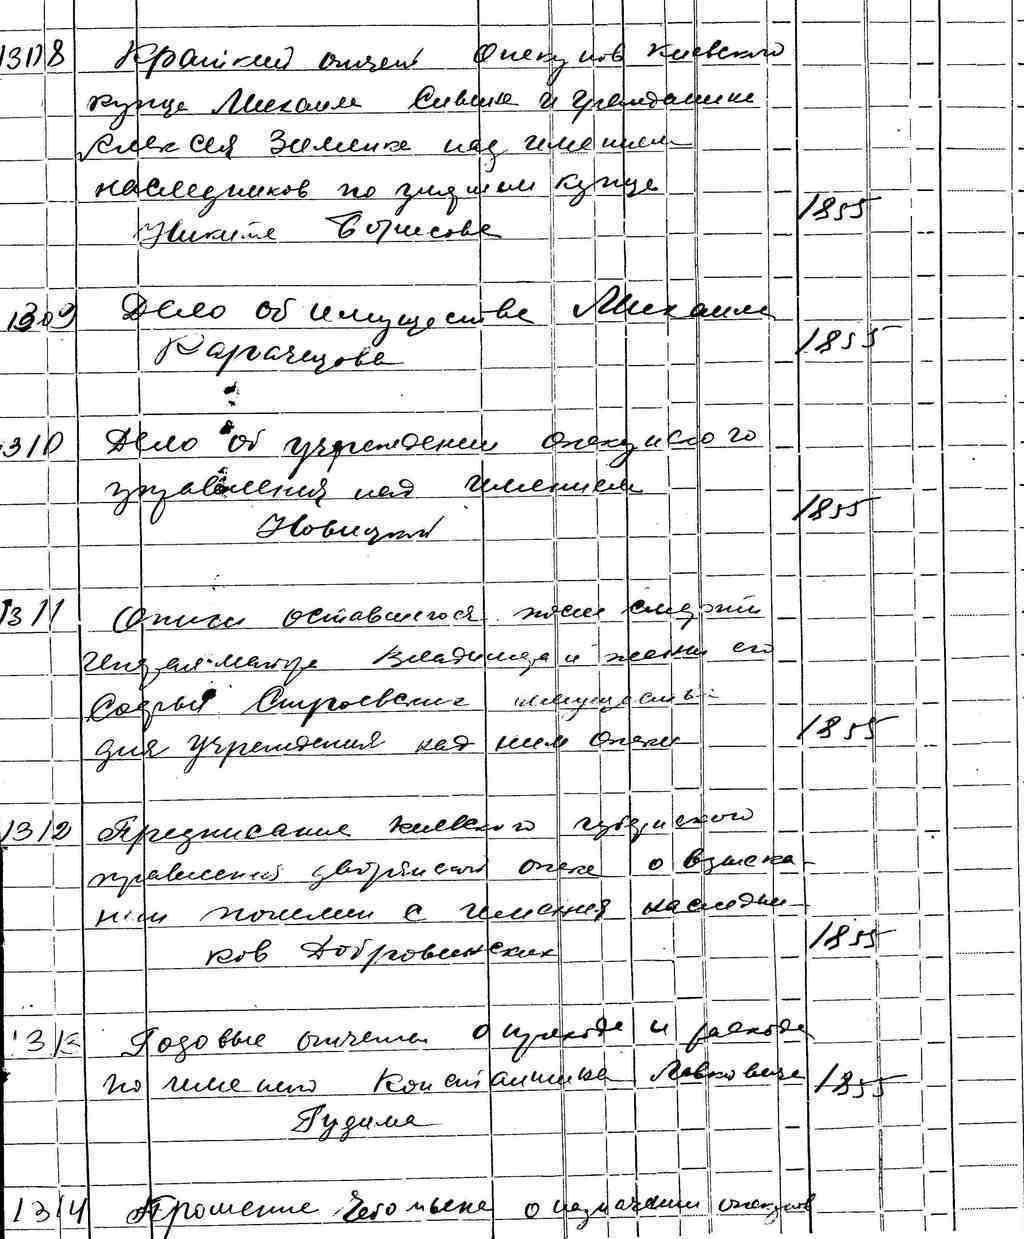 1308 Краткий отчет Опекунов Киевского
купца Михаила и гражданина
Алексея над имением
наследников по купце
Никите Борисове 1855
1309 Дело об имуществе Михаила
Карпачецова 1855
1310 Дело об учреждении опекунского
управления над имением
Новицкой 1855
1311 Описи оставшегося после смерти
Владимира и жены его
Софьи имущества
для учреждения над ним опеки 1855
1312 Предписание Киевского губернского
правления дворянской опеке о взыска-
нии пошлин с имения наследни-
ков Добровинских 1855
1313 Годовые отчеты о приходе и расходе
по имению Константина 1855
Гудима
1314 Прошение о назначении опекунов